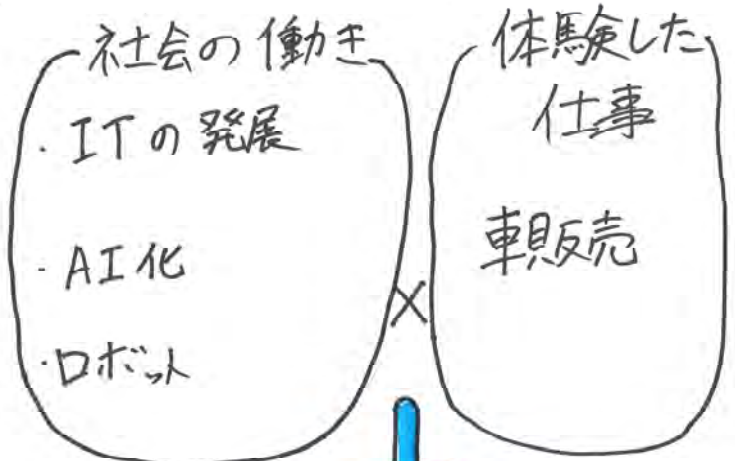 社会の働き
・ITの発展
・AI化
・ロボット
×
体験した
仕事
車販売